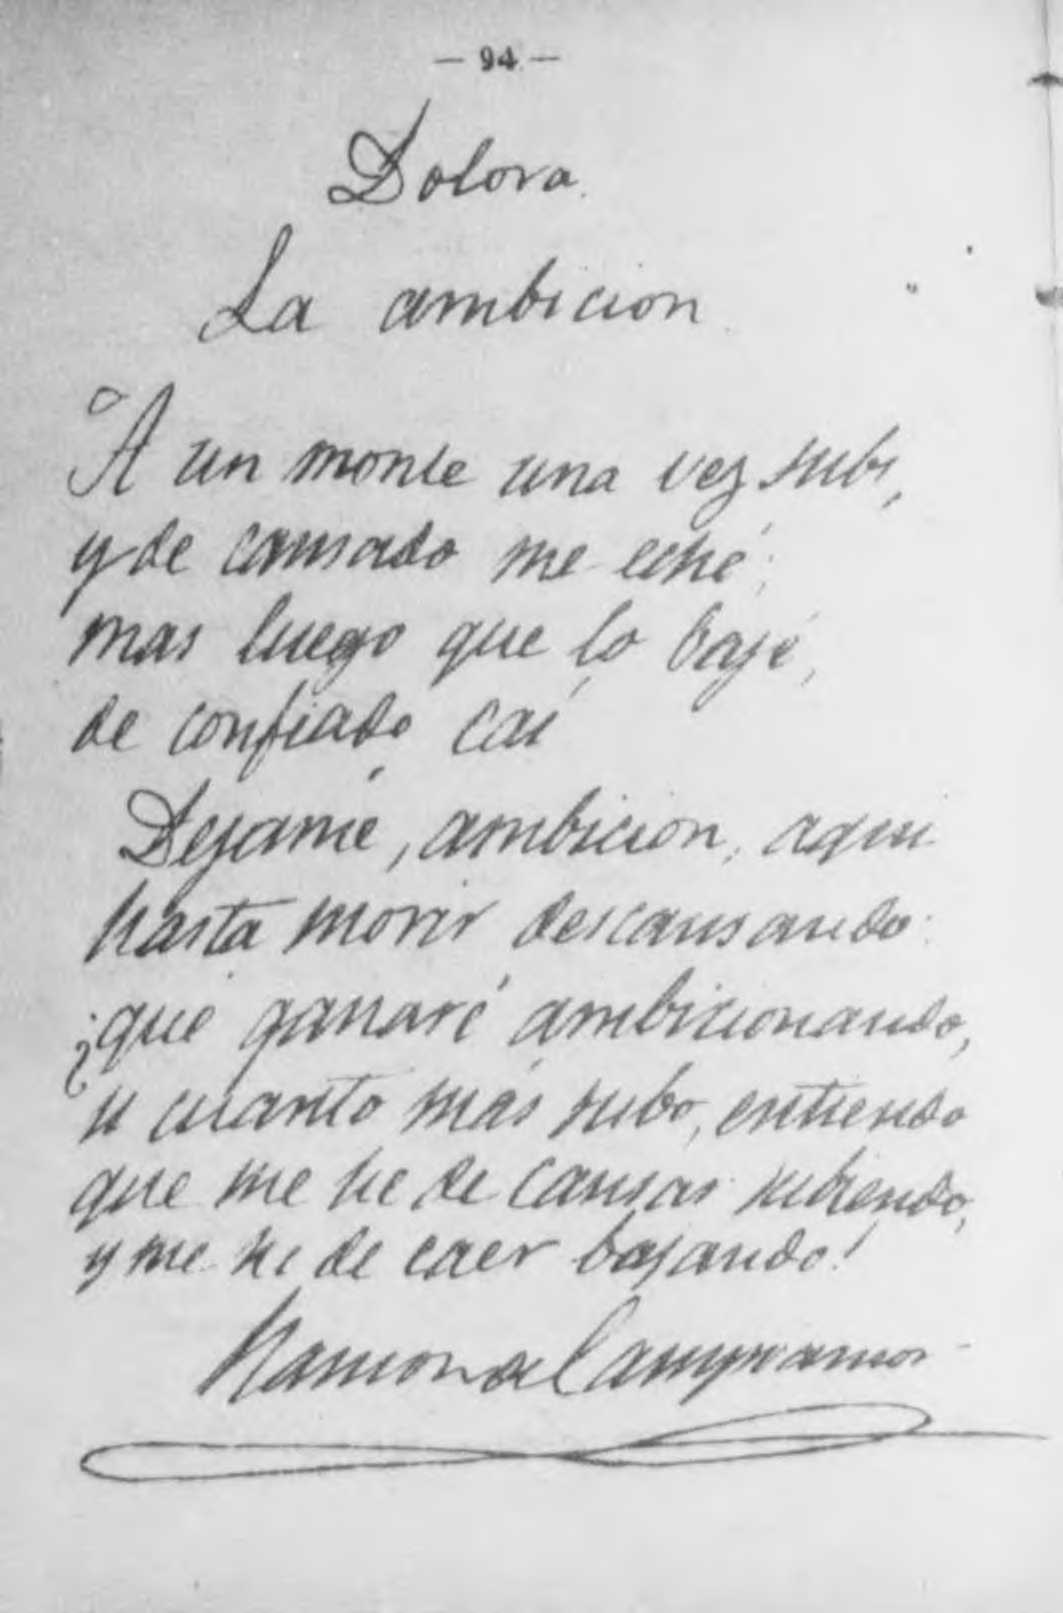 — 94 —
Dolora.
La ambicion.
A un monte una vez subí,
y de cansado me eché;
mas luego que lo bajé,
de confiado caí
Dejame, ambicion, aqui
hasta morir descansando:
¡que ganaré ambicionando,
si cuanto más subo, entiendo
que me he de cansar subiendo,
y me he de caer bajando!
Ramon de Campoamor